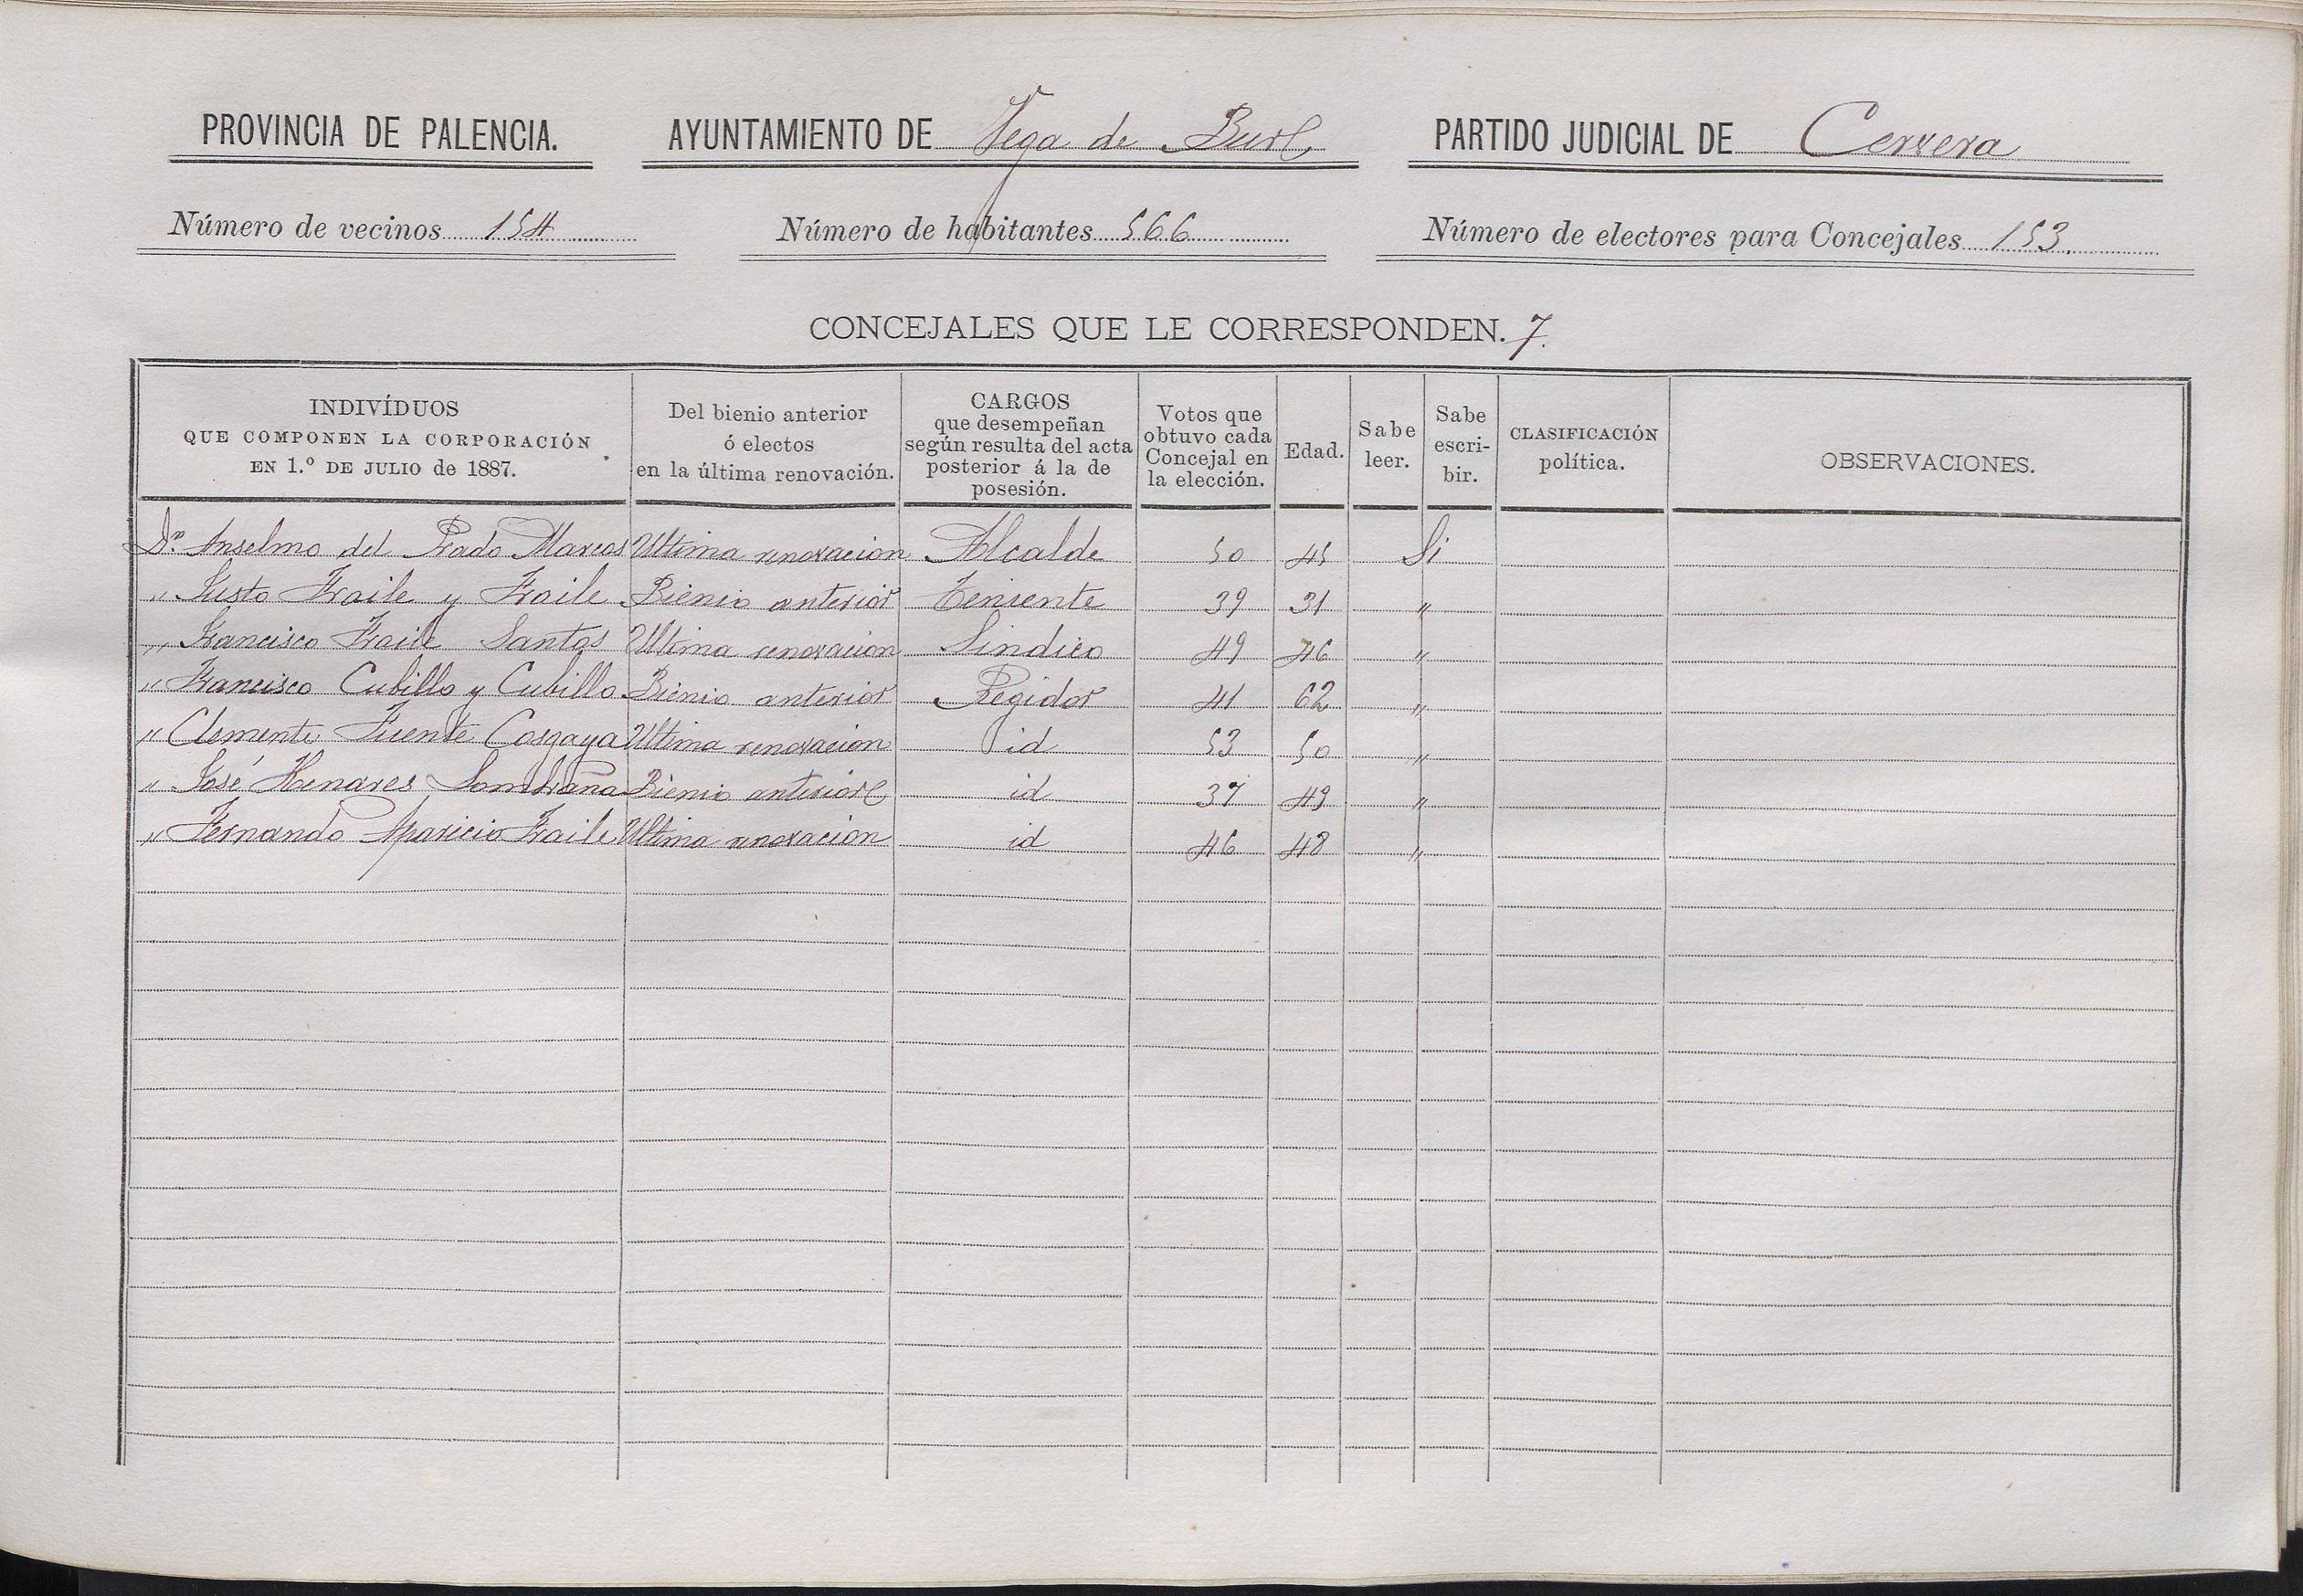 PROVINCIA DE PALENCIA. AYUNTAMIENTO DE Vega de Bur PARTIDO JUDICIAL DE Cervera
Número de vecinos 154 Número de habitantes 566 Número de electores para Concejales 153.
CONCEJALES QUE LE CORRESPONDEN. 7.
INDIVÍDUOS
QUE COMPONEN LA CORPORACIÓN
EN 1.º DE JULIO de 1887.
Del bienio anterior
ó electos
en la última renovación.
CARGOS
que desempeñan
según resulta del acta
posterior á la de
posesión.
Votos que
obtuvo cada
Concejal en
la elección.
Edad.
Sabe
leer.
Sabe
escri-
bir.
CLASIFICACIÓN
política.
OBSERVACIONES.
Dn. Anselmo del Prado Marcos Ultima renovacion Alcalde 50 45 Si
" Justo Fraile y Fraile Bienio anterior Teniente 39 31 "
" Francisco Fraile Santos Ultima renovacion Sindico 49 46 "
" Francisco Cubillo y Cubillo Bienio anterior Regidor 41 62 "
" Clemente Fuente Cosgaya Ultima renovacion id 53 50 "
" José Henares Lombraña Bienio anterior id 37 49 "
" Fernando Aparicio Fraile Ultima renovacion id 46 48 "